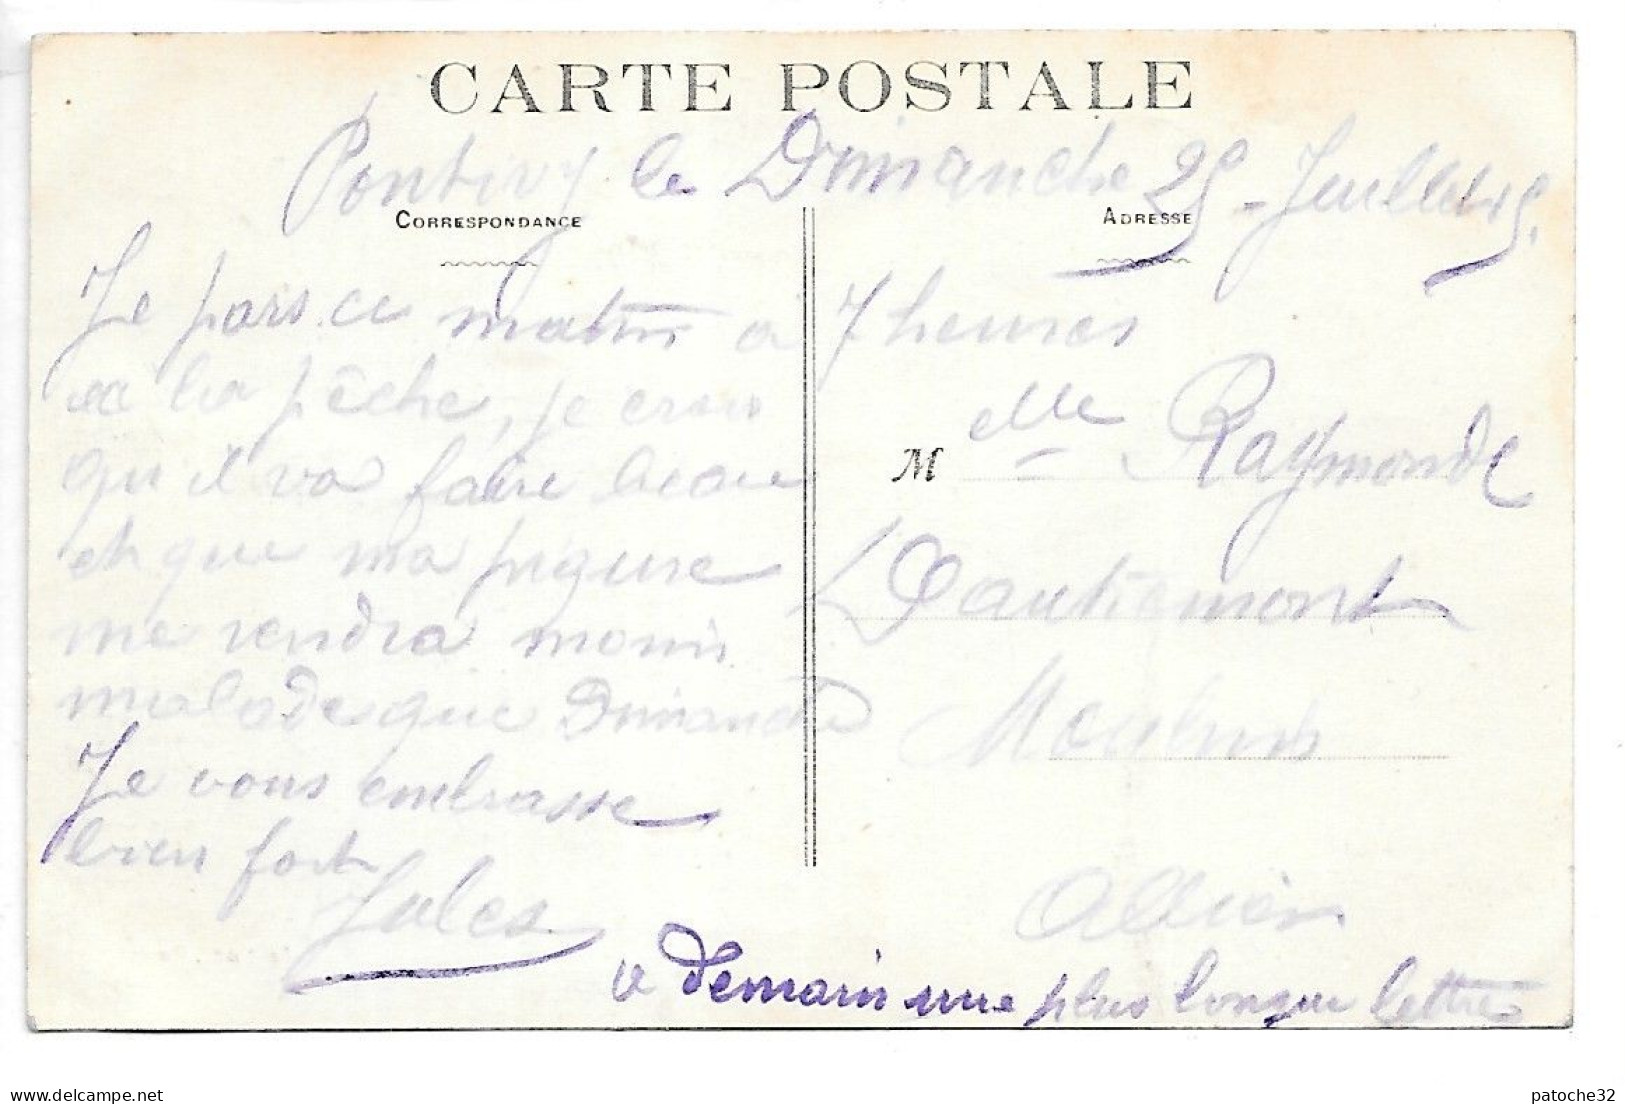 CARTE POSTALE
Pontivy le Dimanche 25 - Juillet 15.
CORRESPONDANCE
ADRESSE
Je pars ce matin à 7 heures
a la pêche, je crois
qu il va faire beau
et que ma piqure
me rendra moins
malade que Dimanche
Je vous embrasse
bien fort
Jules
M elle Raymonde
Dautremont
Moulins
Allier
a demain une plus longue lettre
delcampe.net
patoche32